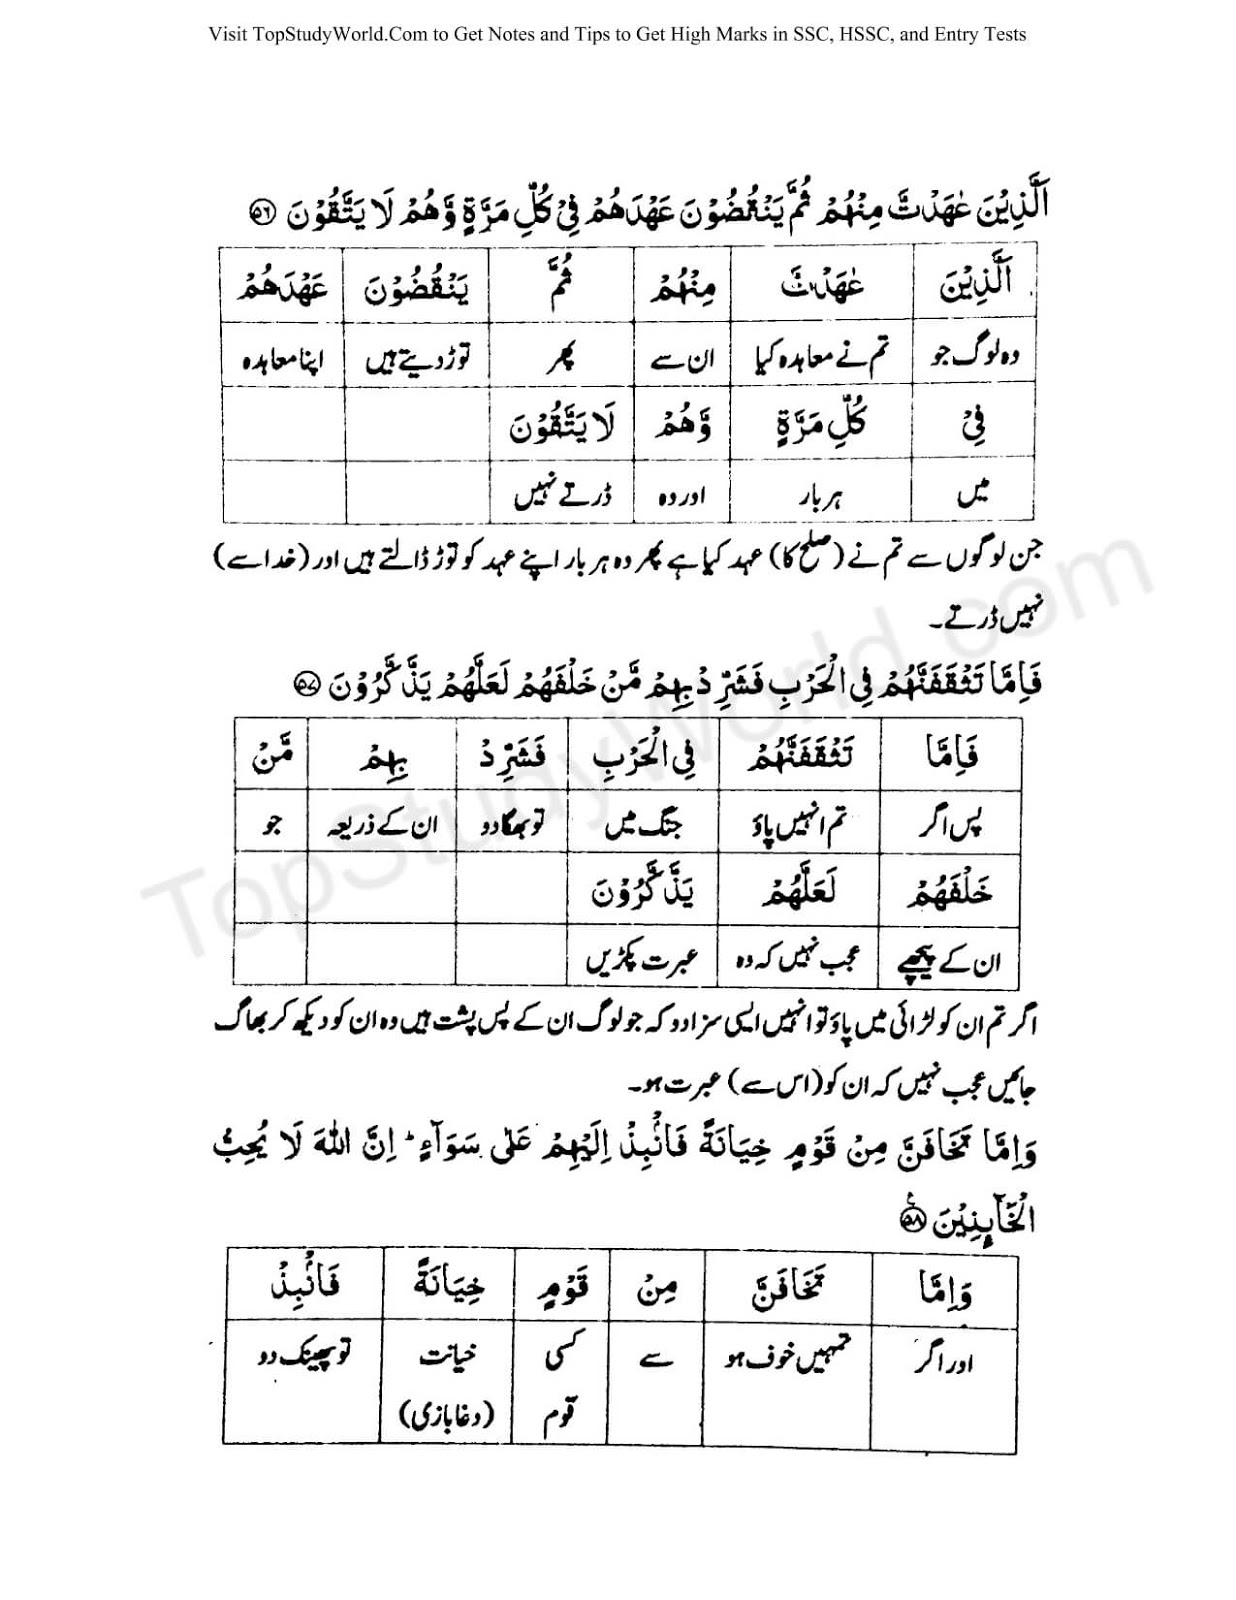 Visit TopStudyWorld.Com to Get Notes and Tips to Get High Marks in SSC, HSSC, and Entry Tests
اَلَّذِيْنَ عٰهَدْتَّ مِنْهُمْ ثُمَّ يَنْقُضُوْنَ عَهْدَهُمْ فِيْ كُلِّ مَرَّةٍ وَّهُمْ لَا يَتَّقُوْنَ ۵۶
اَلَّذِيْنَ عٰهَدْتَّ مِنْهُمْ ثُمَّ يَنْقُضُوْنَ عَهْدَهُمْ
وہ لوگ جو تم نے معاہدہ کیا ان سے پھر توڑ دیتے ہیں اپنا معاہدہ
فِيْ كُلِّ مَرَّةٍ وَّهُمْ لَا يَتَّقُوْنَ
میں ہر بار اور وہ ڈرتے نہیں
جن لوگوں سے تم نے (صلح کا) عہد کیا ہے پھر وہ ہر بار اپنے عہد کو توڑ ڈالتے ہیں اور (خدا سے)
نہیں ڈرتے۔
فَاِمَّا تَثْقَفَنَّهُمْ فِي الْحَرْبِ فَشَرِّدْ بِهِمْ مَّنْ خَلْفَهُمْ لَعَلَّهُمْ يَذَّكَّرُوْنَ ۵۷
فَاِمَّا تَثْقَفَنَّهُمْ فِي الْحَرْبِ فَشَرِّدْ بِهِمْ مَّنْ
پس اگر تم انہیں پاؤ جنگ میں تو بھگا دو ان کے ذریعہ جو
خَلْفَهُمْ لَعَلَّهُمْ يَذَّكَّرُوْنَ
ان کے پیچھے عجب نہیں کہ وہ عبرت پکڑیں
اگر تم ان کو لڑائی میں پاؤ تو انہیں ایسی سزا دو کہ جو لوگ ان کے پس پشت ہیں وہ ان کو دیکھ کر بھاگ
جائیں عجب نہیں کہ ان کو (اس سے) عبرت ہو۔
وَاِمَّا تَخَافَنَّ مِنْ قَوْمٍ خِيَانَةً فَانْۢبِذْ اِلَيْهِمْ عَلٰى سَوَآءٍ ؕ اِنَّ اللّٰهَ لَا يُحِبُّ
الْخَآئِنِيْنَ ۵۸
وَاِمَّا تَخَافَنَّ مِنْ قَوْمٍ خِيَانَةً فَانْۢبِذْ
اور اگر تمہیں خوف ہو سے کسی خیانت تو پھینک دو
قوم (دغا بازی)
TopStudyWorld.com